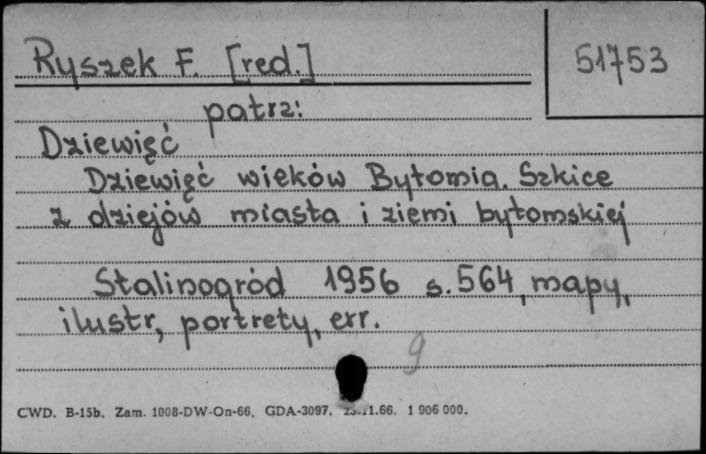 Ryszek F. [red.]
51753
patrz:
Dziewięć
Dziewięć wieków Bytomia. Szkice
z dziejów miasta i ziemi bytomskiej
Stalinogród 1956 s. 564, mapy,
ilustr, portrety, err.
9
CWD. B-15b. Zam. 1008-DW-On-66. GDA-3097. .11.66. 1 906 000.